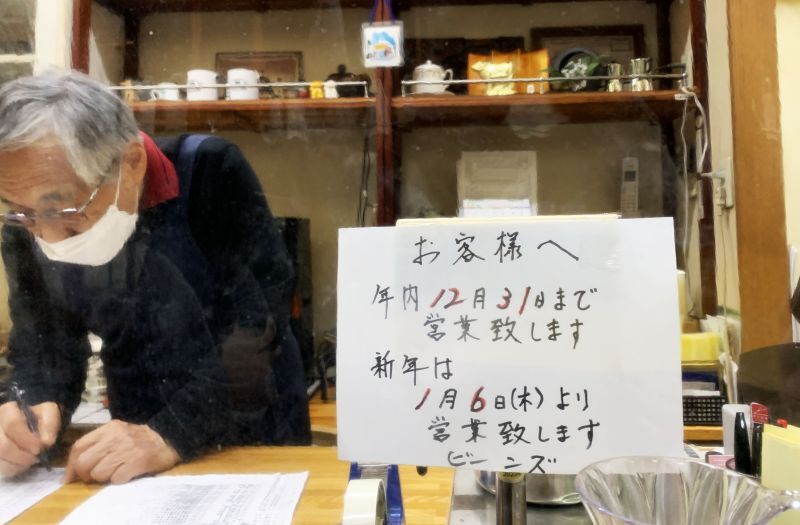 お客様へ
年内12月31日まで
営業致します
新年は
1月6日(木)より
営業致します
ビーンズ